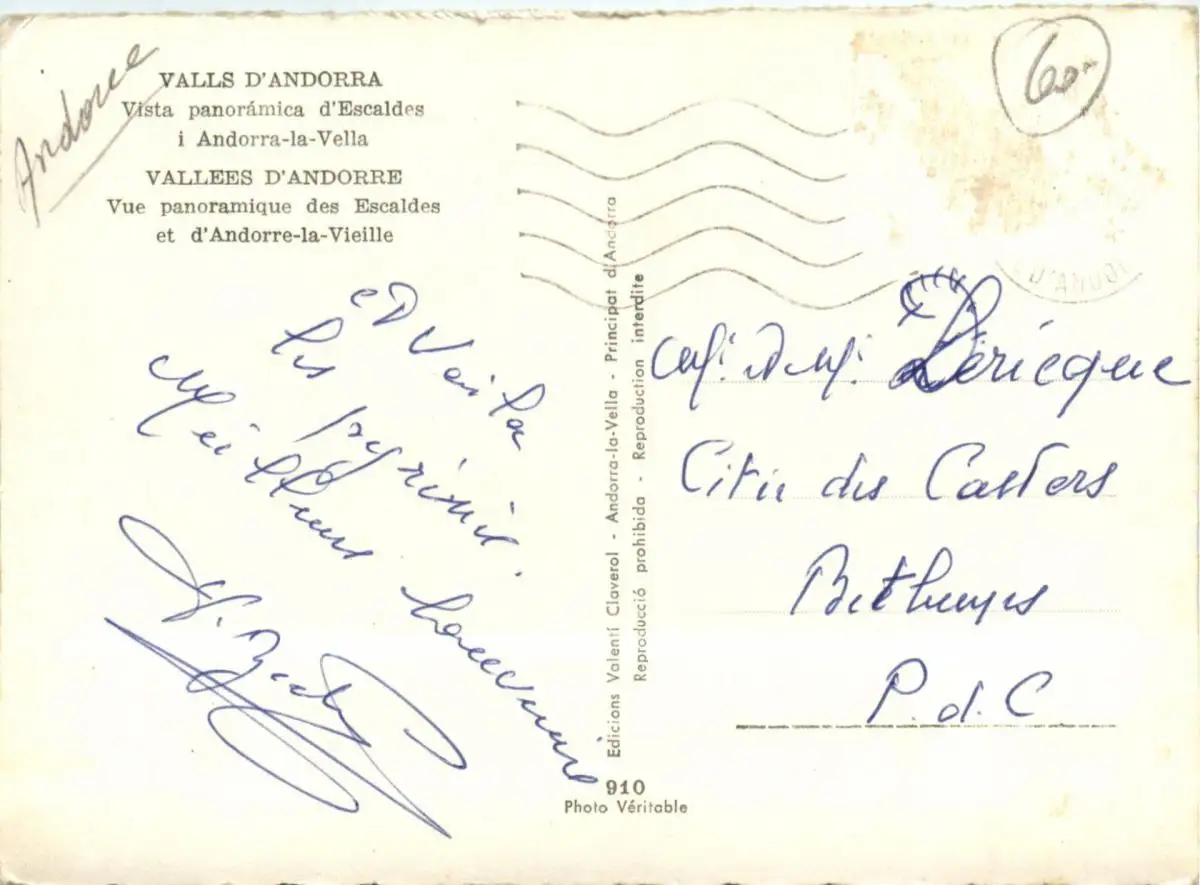 Andorre
VALLS D'ANDORRA
Vista panorámica d'Escaldes
i Andorra-la-Vella
VALLEES D'ANDORRE
Vue panoramique des Escaldes
et d'Andorre-la-Vieille
60
D'ANDOR
Voila
les pyrénées.
Meilleurs souvenirs
Edicions Valentí Claverol - Andorra-la-Vella - Principat d'Andorra
Reproducció prohibida - Reproduction interdite
910
Photo Véritable
Dériecque
Citée des Castors
Bethunes
P. d. C